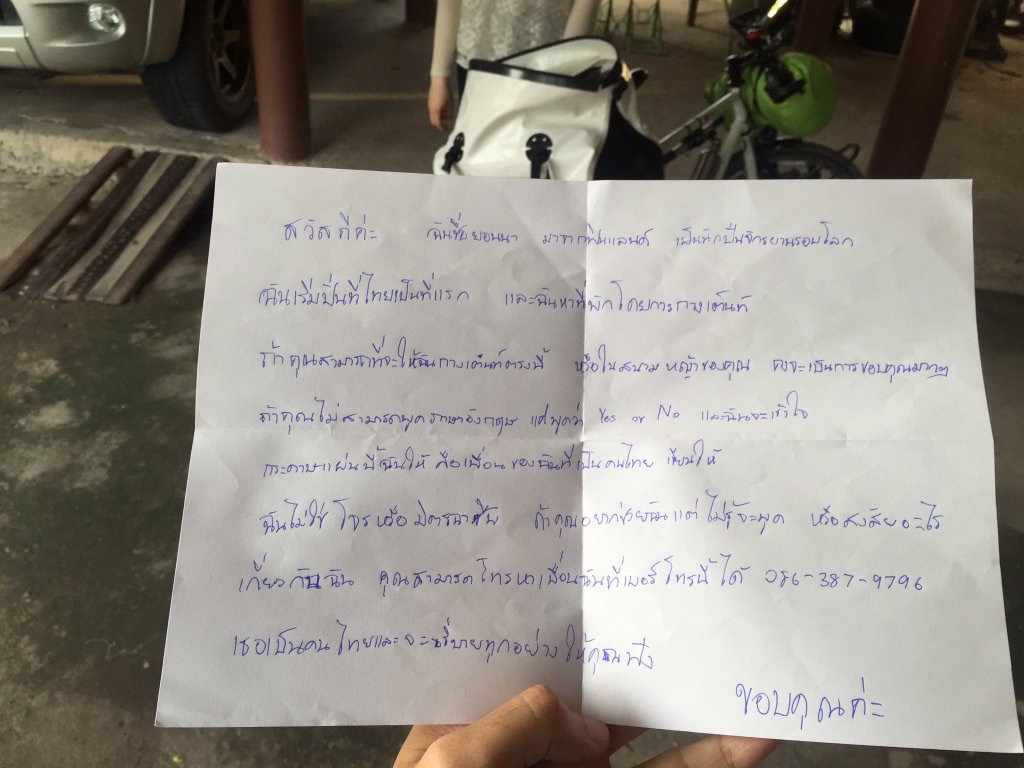 สวัสดีค่ะ ฉันชื่อยอนนา มาจากฟินแลนด์ เป็นนักปั่นจักรยานรอบโลก
ฉันเริ่มปั่นที่ไทยเป็นที่แรก และฉันหาที่พักโดยการกางเต็นท์
ถ้าคุณสามารถที่จะให้ฉันกางเต็นท์ตรงนี้ หรือในสนามหญ้าของคุณ จะเป็นการขอบคุณมากๆ
ถ้าคุณไม่สามารถพูดภาษาอังกฤษ แค่พูดว่า Yes or No และฉันจะเข้าใจ
กระดาษแผ่นนี้ฉันให้ เพื่อนของฉันที่เป็นคนไทย เขียนให้
ฉันไม่ใช่โจรหรือมิจฉาชีพ ถ้าคุณอยากช่วยฉันแต่ไม่รู้จะพูด หรือสงสัยอะไร
เกี่ยวกับฉัน คุณสามารถโทรหาเพื่อนฉันที่เบอร์โทรนี้ได้ 086-387-9796
เธอเป็นคนไทยและจะอธิบายทุกอย่างให้คุณฟัง
ขอบคุณค่ะ